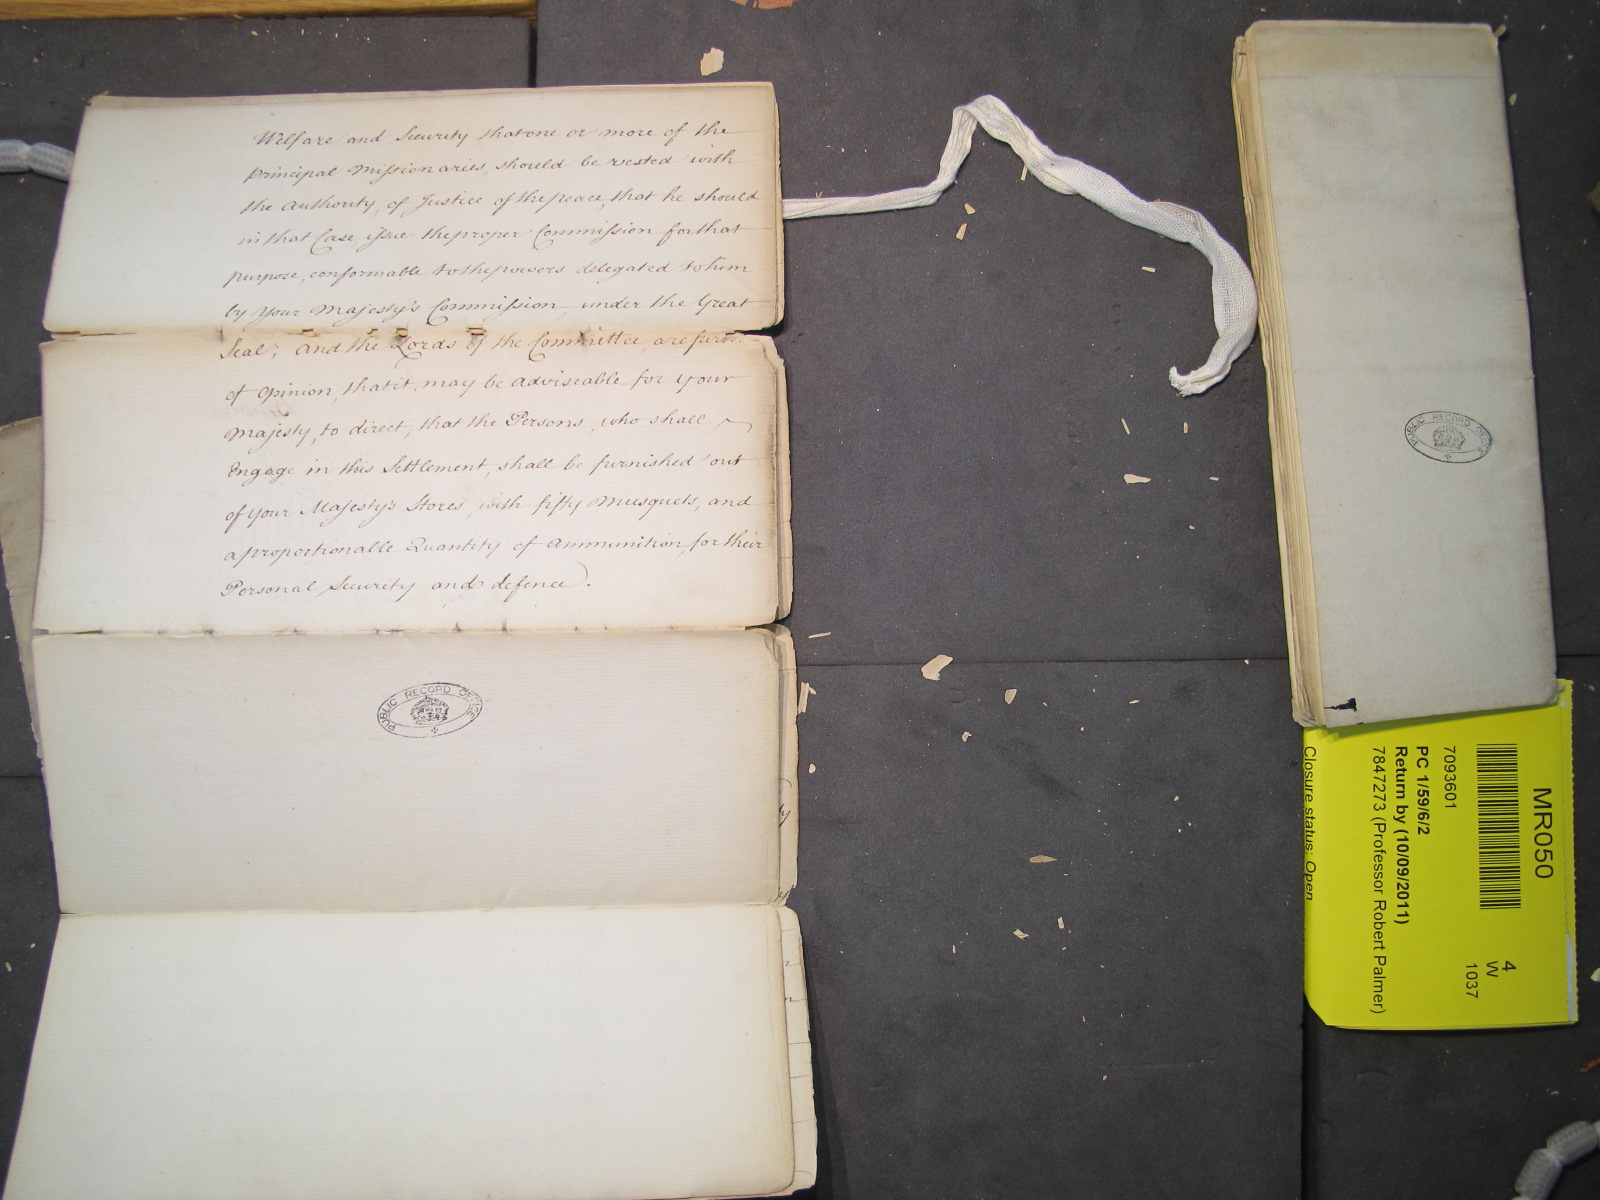 Welfare and Security that one or more of the
principal Missionaries, should be vested with
the Authority, of Justice of the peace, that he should
in that Case, issue the proper Commission for that
purpose, conformable to the powers delegated to him
by Your Majesty's Commission, under the Great
Seal; And the Lords of the Committee, are
of Opinion, that it may be Adviseable for Your
Majesty, to direct, that the Persons, who shall
Engage in this Settlement, shall be furnished out
of Your Majesty's Stores, with fifty Musquets, and
a proportionable Quantity of Ammunition, for their
Personal Security and defence).
PUBLIC RECORD OFFICE
PUBLIC RECORD OFFICE
MR050
4
W
1037
7093601
PC 1/59/6/2
Return by (10/09/2011)
7847273 (Professor Robert Palmer)
Closure status: Open